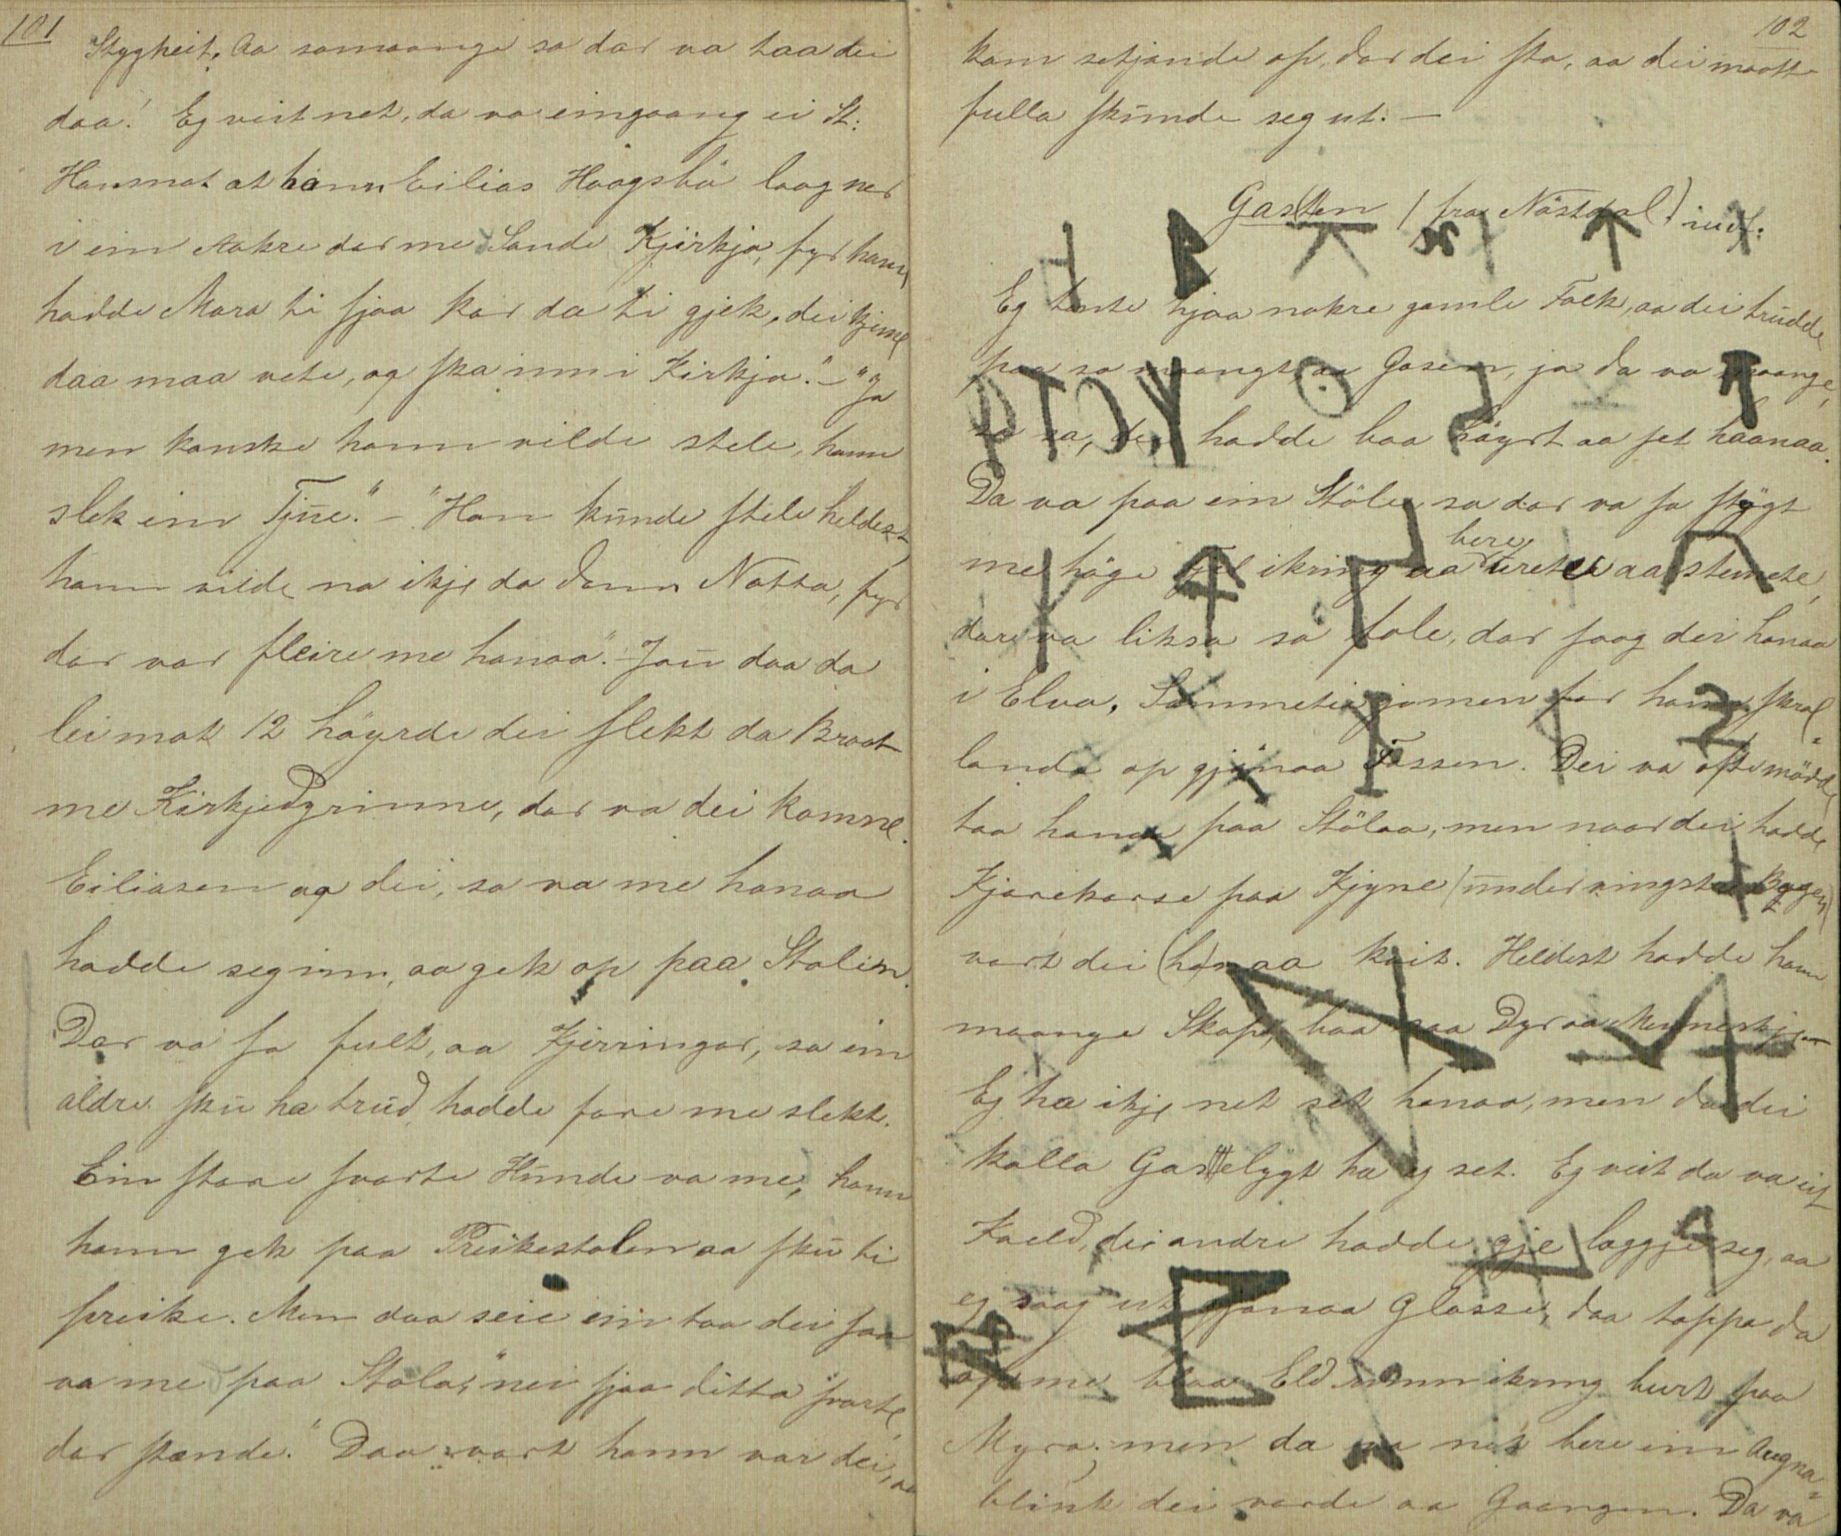 101
Stygheit. Aa somaange so dar va taa dei
daa! Eg veit net, da va eingaang ei St.
Hansnat at hann Eilias Haagsbö laag ner
i ein Aakre dar me Sande Kjirkja, fyr hann
hadde Mara ti sjaa kor da ti gjek, dei kjeme
daa maa vete, og ska inn i Kirkja." - "Ja
men kanske hann vilde stele, hann
slek ein Tjue." - "Han kunde stele heldest,
hann vilde na ikje da denn Notta, fyr
dar var fleire me hanaa." Jau daa da
lei mot 12 höyrde dei slekt da Braat
me Kirkjegrinne, dar va dei komne.
Eiliasen og dei, so va me hanaa
hadde seg inn, aa gek op paa Stolen.
Dar va so fult, aa Kjerringar, so ein
aldre sku ha trud hadde fare me slekt.
Ein store svarte Hunde va me, hann
hann gek paa Preikestolen aa sku ti
preike. Men daa seie ein taa dei so
va me paa Stola, "nei sjaa ditta svarte
dar stande." Daa vart hann var dei, aa
102
kom setjande op, dar dei sto, aa dei maatte
fulla skunde seg ut. —
Gasten (fra Nästdal)
Eg tente hjaa nokre gamle Folk, aa dei trudde
paa so maangt, aa Gasen, ja da va maange,
so sa, dei hadde baa höyrt aa set haanaa.
Da va paa ein Stöle, so dar va so stygt
me höge Fjel ikring aa bere uretu aa steinete,
dar va liksa so fole, dar saag dei hanaa
i Elva. Sommetie gjomen for hann skral-
lande op gjönaa Fossen. Dei va ofte mödde
taa hanaa paa Stölaa, men naar dei hadde
Kjorekorse paa Kjyne (under vingste Bogen)
vart dei (ha)naa kvit. Heldest hadde hann
maange Skap, baa aa Dyr aa Menneskje
Eg ha ikje net set hanaa, men da dei
kalla Gastelygt ha eg set. Eg veit da va eit
Kveld, dei andre hadde gje laggje seg, aa
eg saag ut gjönaa Glasse, daa toppa da
op me blaa Eld runn ikring burt paa
Myra; men da va net bere ein Augna-
blink dei varde aa Gaangen. Da va